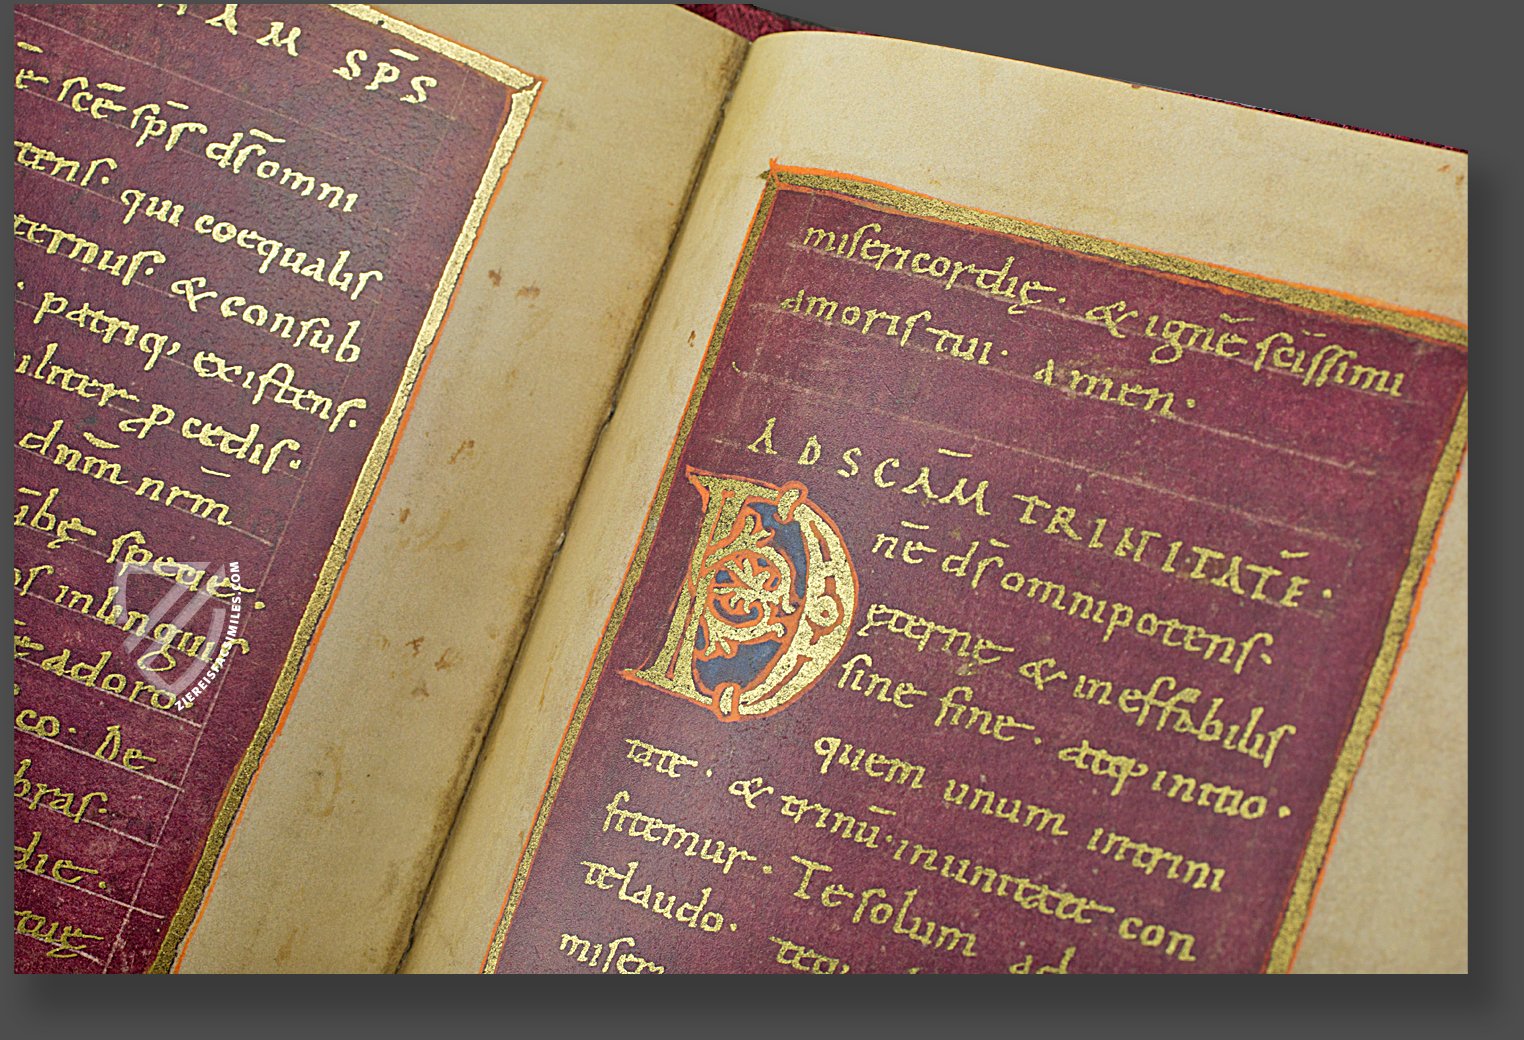 AM SP̄S
scē sp̄s ds̄ omni
tens. qui coequalis
ternus. & consub
. patriq, existens.
iliter p cedis.
dnm̄ nrm̄
ībę specię.
os inlinguis
adoro.
co. De
bras.
die.
misericordię. & ignē scīssimi
amoris tui. amen.
AD SCĀM TRINITATĒ.
D nē ds̄ omnipotens.
ęternę & ineffabilis
sine fine. atq, initio.
quem unum intrini
tate. & trinū. inunitate con
fitemur. Te solum ad
te laudo. teq,
miser
ZIEREISFACSIMILES.COM